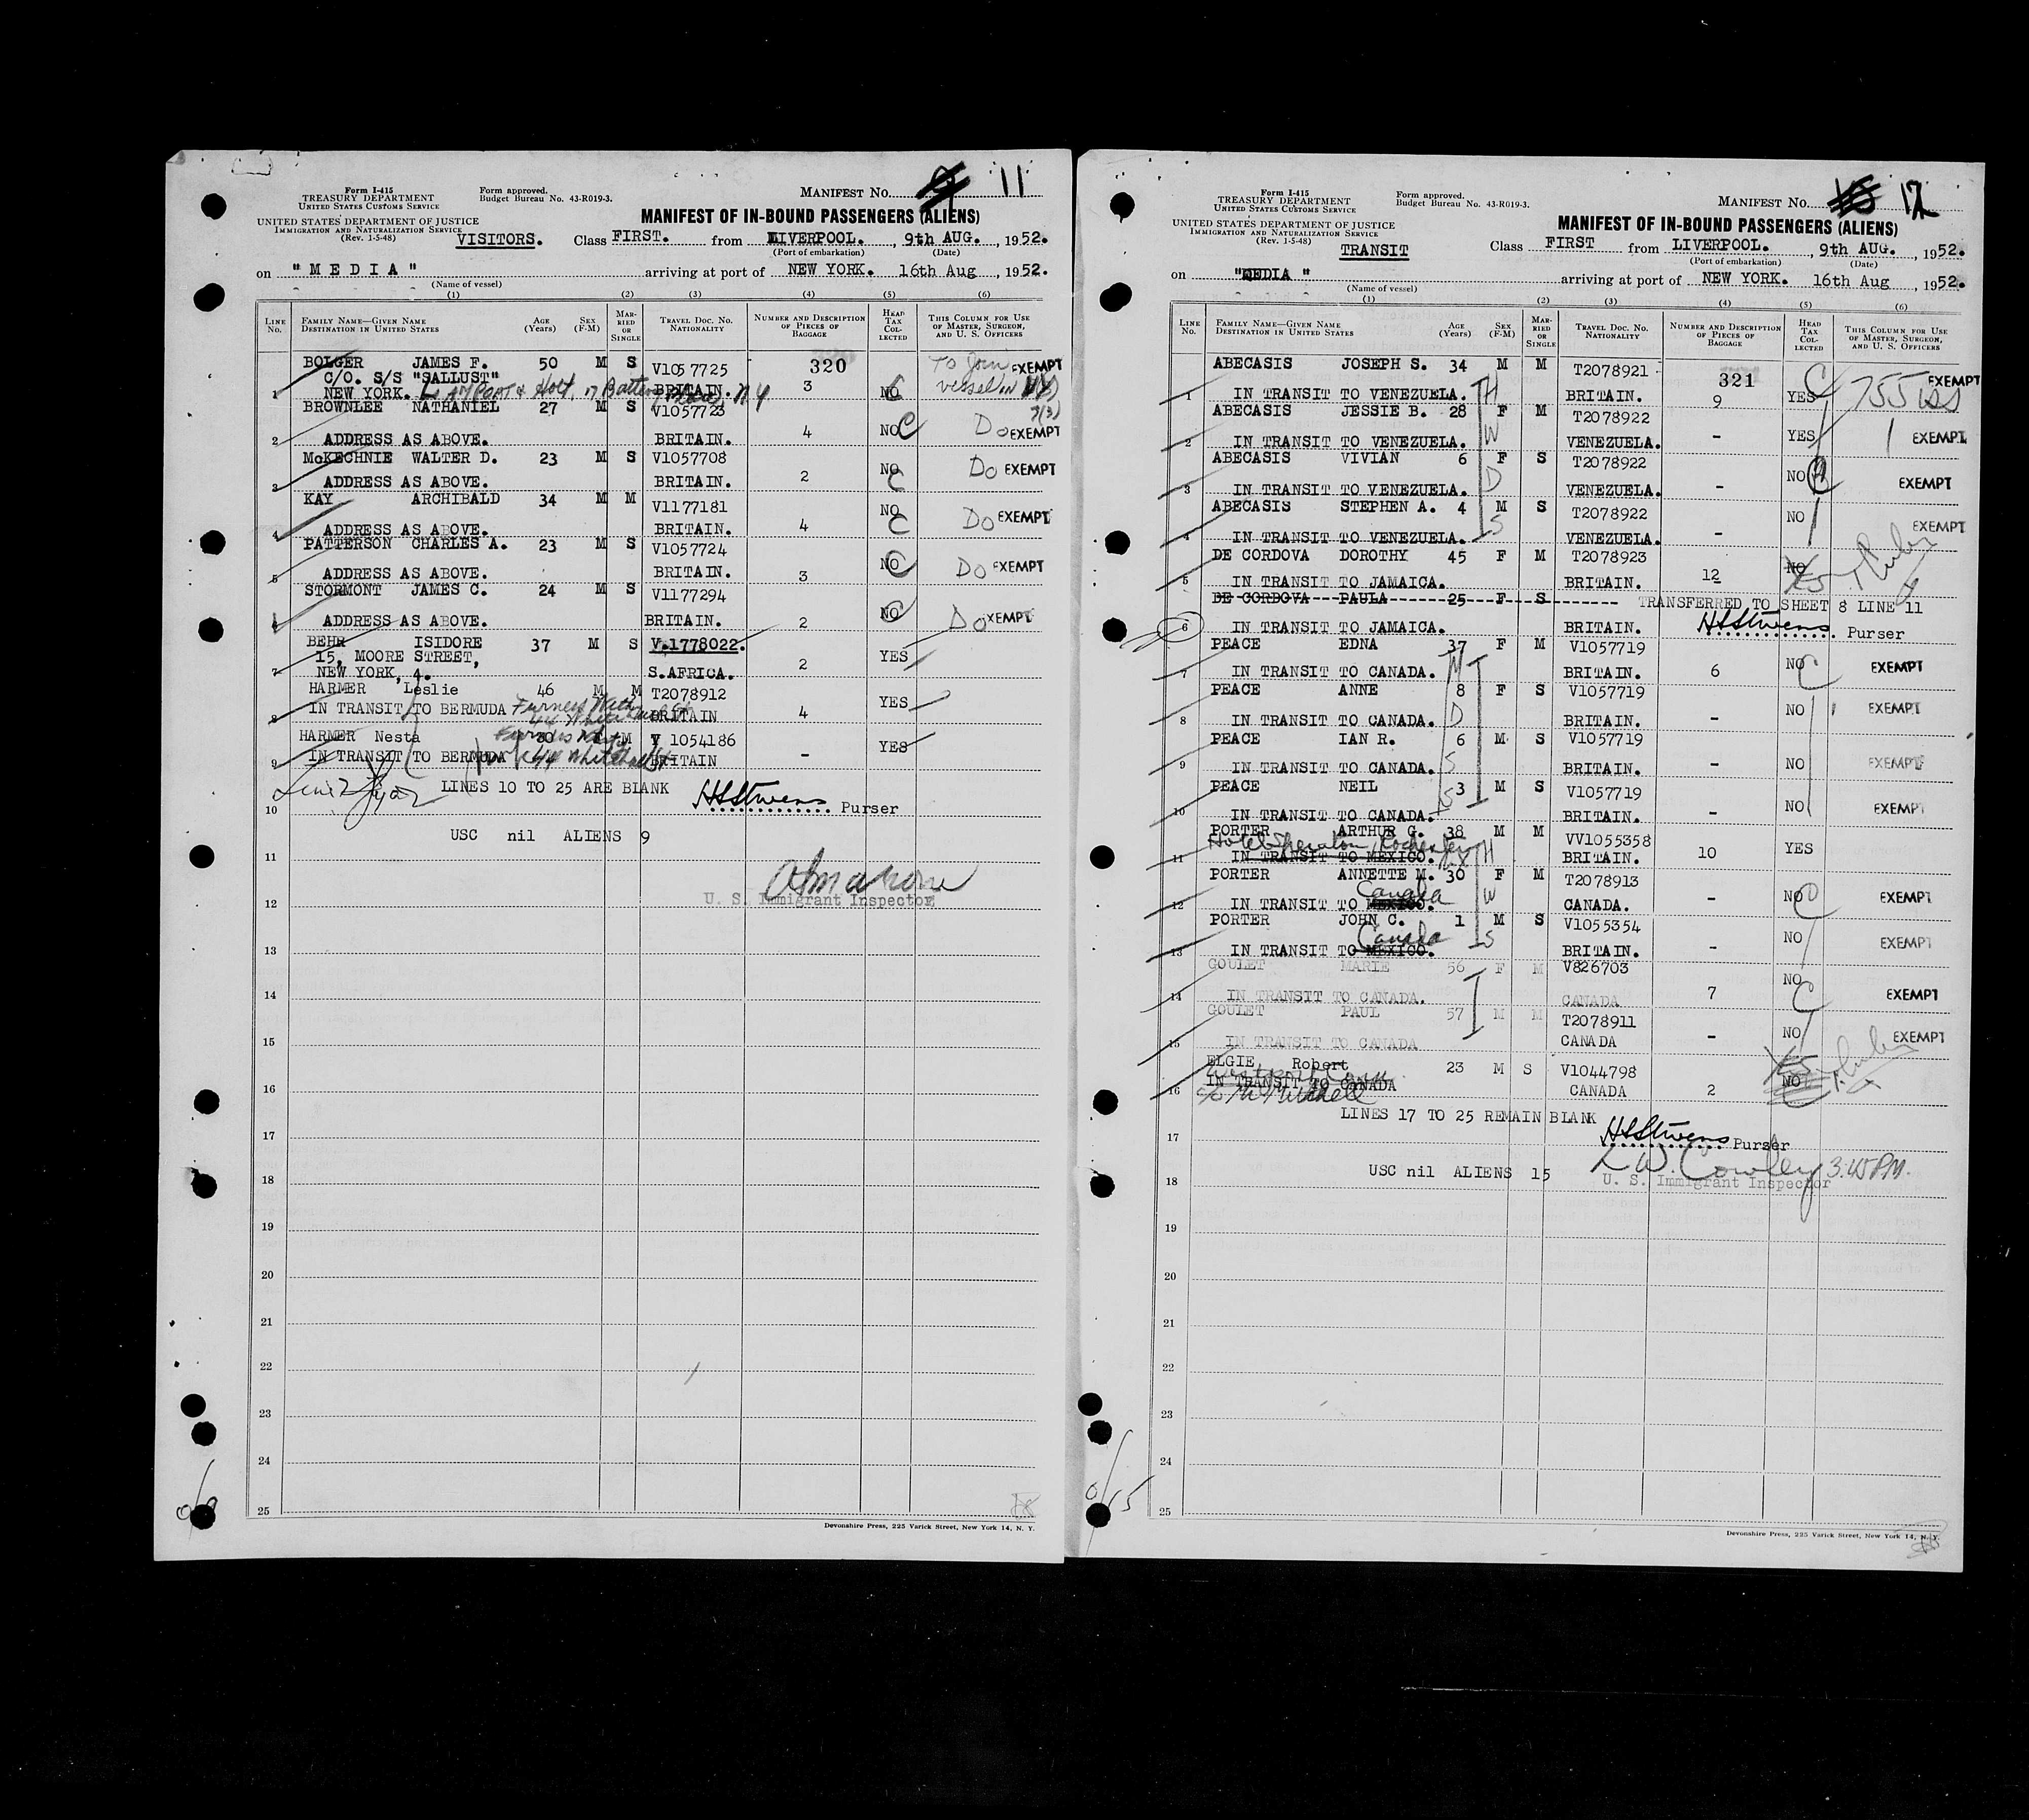 Form I-415
TREASURY DEPARTMENT
UNITED STATES CUSTOMS SERVICE
Form approved.
Budget Bureau No. 43-R019-3.
MANIFEST NO. 11
UNITED STATES DEPARTMENT OF JUSTICE
IMMIGRATION AND NATURALIZATION SERVICE
(Rev. 1-5-48)
MANIFEST OF IN-BOUND PASSENGERS (ALIENS)
VISITORS. Class FIRST. from LIVERPOOL. , 9th AUG. , 1952.
(Port of embarkation) (Date)
on "MEDIA" arriving at port of NEW YORK. 16th Aug , 1952.
(Name of vessel)
(1) (2) (3) (4) (5) (6)
LINE No. FAMILY NAME—GIVEN NAME DESTINATION IN UNITED STATES AGE (Years) SEX (F-M) MARRIED OR SINGLE TRAVEL DOC. NO. NATIONALITY NUMBER AND DESCRIPTION OF PIECES OF BAGGAGE HEAD TAX COLLECTED THIS COLUMN FOR USE OF MASTER, SURGEON, AND U. S. OFFICERS
BOLGER JAMES F. 50 M S V1057725 320 To Join EXEMPT
C/O. S/S "SALLUST"
1 NEW YORK. Lamport & Holt, 17 Battery Place, N.Y BRITAIN. 3 NO C vessel in
BROWNLEE NATHANIEL 27 M S V1057723 7(3)
2 ADDRESS AS ABOVE. BRITAIN. 4 NO C Do EXEMPT
McKECHNIE WALTER D. 23 M S V1057708
3 ADDRESS AS ABOVE. BRITAIN. 2 NO C Do EXEMPT
KAY ARCHIBALD 34 M M V1177181
4 ADDRESS AS ABOVE. BRITAIN. 4 NO C Do EXEMPT
PATTERSON CHARLES A. 23 M S V1057724
5 ADDRESS AS ABOVE. BRITAIN. 3 NO C Do EXEMPT
STORMONT JAMES C. 24 M S V1177294
6 ADDRESS AS ABOVE. BRITAIN. 2 NO C Do EXEMPT
BEHR ISIDORE 37 M S V.1778022.
15, MOORE STREET,
7 NEW YORK, 4. S.AFRICA. 2 YES
HARMER Leslie 46 M M T2078912
8 IN TRANSIT TO BERMUDA Furness With 44 Whitehall St BRITAIN 4 YES
HARMER Nesta 30 M V 1054186
9 IN TRANSIT TO BERMUDA 44 Whitehall St BRITAIN - YES
10 LINES 10 TO 25 ARE BLANK HSStivens Purser
USC nil ALIENS 9
11
12 U. S. Immigrant Inspector
13
14
15
16
17
18
19
20
21
22
23
24
25
0/9
Devonshire Press, 225 Varick Street, New York 14, N. Y.
Form I-415
TREASURY DEPARTMENT
UNITED STATES CUSTOMS SERVICE
Form approved.
Budget Bureau No. 43-R019-3.
MANIFEST NO. 12
UNITED STATES DEPARTMENT OF JUSTICE
IMMIGRATION AND NATURALIZATION SERVICE
(Rev. 1-5-48)
MANIFEST OF IN-BOUND PASSENGERS (ALIENS)
TRANSIT Class FIRST from LIVERPOOL. , 9th AUG. , 1952.
(Port of embarkation) (Date)
on "MEDIA " arriving at port of NEW YORK. 16th Aug , 1952.
(Name of vessel)
(1) (2) (3) (4) (5) (6)
LINE No. FAMILY NAME—GIVEN NAME DESTINATION IN UNITED STATES AGE (Years) SEX (F-M) MARRIED OR SINGLE TRAVEL DOC. NO. NATIONALITY NUMBER AND DESCRIPTION OF PIECES OF BAGGAGE HEAD TAX COLLECTED THIS COLUMN FOR USE OF MASTER, SURGEON, AND U. S. OFFICERS
ABECASIS JOSEPH S. 34 M M T2078921 321 C 755 EXEMPT
1 IN TRANSIT TO VENEZUELA. H BRITAIN. 9 YES
ABECASIS JESSIE B. 28 F M T2078922
2 IN TRANSIT TO VENEZUELA. W VENEZUELA. - YES EXEMPT
ABECASIS VIVIAN 6 F S T2078922
3 IN TRANSIT TO VENEZUELA. D VENEZUELA. - NO EXEMPT
ABECASIS STEPHEN A. 4 M S T2078922
4 IN TRANSIT TO VENEZUELA. S VENEZUELA. - NO EXEMPT
DE CORDOVA DOROTHY 45 F M T2078923
5 IN TRANSIT TO JAMAICA. BRITAIN. 12 NO Yes
DE CORDOVA PAULA 25 F S TRANSFERRED TO SHEET 8 LINE 11
6 IN TRANSIT TO JAMAICA. BRITAIN. HSStivens Purser
PEACE EDNA 37 F M V1057719
7 IN TRANSIT TO CANADA. M BRITAIN. 6 NO C EXEMPT
PEACE ANNE 8 F S V1057719
8 IN TRANSIT TO CANADA. D BRITAIN. - NO EXEMPT
PEACE IAN R. 6 M S V1057719
9 IN TRANSIT TO CANADA. S BRITAIN. - NO EXEMPT
PEACE NEIL 3 M S V1057719
10 IN TRANSIT TO CANADA. S BRITAIN. - NO EXEMPT
PORTER ARTHUR G. 38 M M VV1055358
Hotel Sheraton, Rochester
11 IN TRANSIT TO MEXICO. H BRITAIN. 10 YES
PORTER ANNETTE M. 30 F M T2078913
12 IN TRANSIT TO MEXICO. Canada W CANADA. - NO C EXEMPT
PORTER JOHN C. 1 M S V1055354
13 IN TRANSIT TO MEXICO. Canada S BRITAIN. - NO EXEMPT
GOULET MARIE 56 F M V826703
14 IN TRANSIT TO CANADA. CANADA 7 NO C EXEMPT
GOULET PAUL 57 M M T2078911
15 IN TRANSIT TO CANADA CANADA - NO EXEMPT
ELGIE, Robert 23 M S V1044798 Yes
16 IN TRANSIT TO CANADA CANADA 2 NO
c/o Mitchell
LINES 17 TO 25 REMAIN BLANK
17 HSStivens Purser
18 USC nil ALIENS 15 L W. Cowley 3:45 PM.
U. S. Immigrant Inspector
19
20
21
22
23
24
25
0/15
Devonshire Press, 225 Varick Street, New York 14, N. Y.